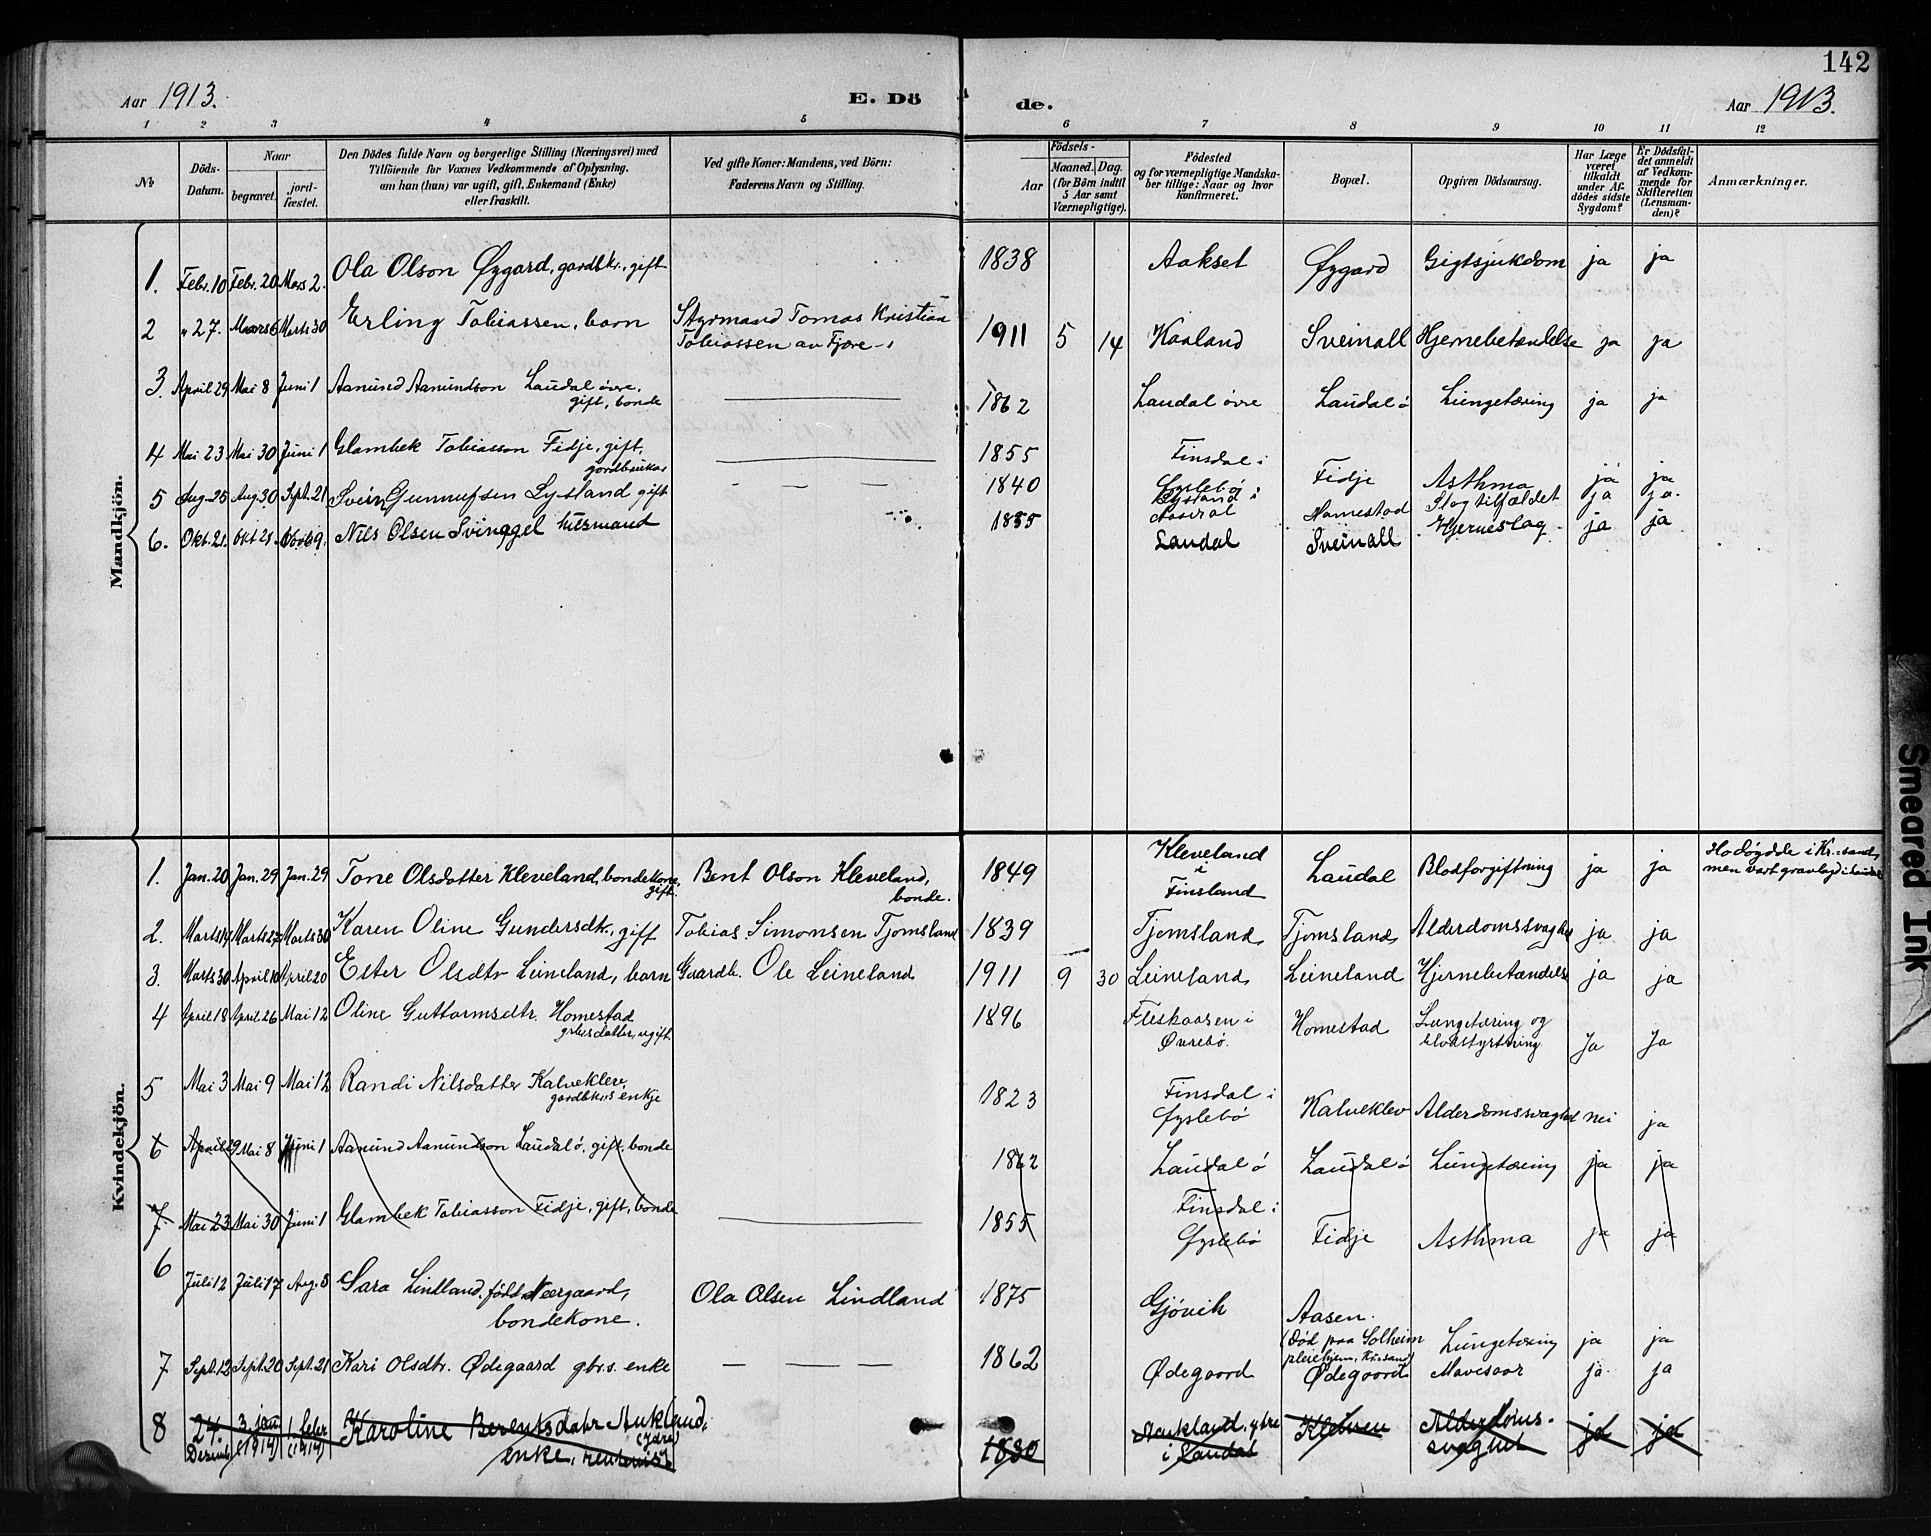 142
Aar 1913.
E. Döde.
Aar 1913.
1 2 3 4 5 6 7 8 9 10 11 12
No
Döds-Datum.
Naar
begravet.
jord-fæstet.
Den Dödes fulde Navn og borgerlige Stilling (Næringsvei) med
Tilföiende for Voxnes Vedkommende af Oplysning,
om han (hun) var ugift, gift, Enkemand (Enke)
eller fraskilt.
Ved gifte Koner: Mandens, ved Börn:
Faderens Navn og Stilling.
Födsels-
Aar
Maaned.
Dag.
(for Børn indtil
5 Aar samt
Værnepligtige).
Födested
og for værnepligtige Mandska-
ber tillige: Naar og hvor
konfirmeret.
Bopæl.
Opgiven Dödsaarsag.
Har Læge
været
tilkaldt
under Af-
dödes sidste
Sygdom?
Er Dödsfal-
det anmeldt
af Vedkom-
mende for
Skifteretten
(Lensman-
den)?
Anmærkninger.
Mandkjön.
1. Febr. 10 Febr. 20 Mars 2. Ola Olson Øygard, gardbr., gift 1838 Aakset Øygard Gigtsjukdom ja ja
2 " 27. Mars 6 Marts 30 Erling Tobiassen, barn Styrmand Tomas Kristian
Tobiassen av Fjære 1911 5 14 Kaaland Sveinall Hjernebetændelse ja ja
3. April 29 Mai 8 Juni 1 Aanund Aanundson Laudal øvre,
gift, bonde 1862 Laudal øvre Laudal ø Lungetæring ja ja
4 Mai 23 Mai 30 Juni 1 Glambek Tobiasson Fidje, gift,
gardbrukar 1855 Finsdal i
Øyslebø Fidje Asthma ja ja
5 Aug. 25 Aug. 30 Sept. 21 Svein Gunnufsen Lysland gift 1840 Lysland i Homestad Slagtilfældet ja ja.
6. Okt. 21. Okt 29 Nils Olsen husmand 1835 Laudal Sveinall Hjerneslag ja ja
Kvindekjön.
1. Jan. 20 Jan. 29 Jan. 29 Tone Olsdatter Kleveland, bondekone,
gift. Bent Olson Kleveland,
bonde. 1849 Kleveland
i
Finsland Laudal Blodforgiftning ja ja
2. Marts 14 Marts 27 Marts 30 Karen Oline Gundersdtr., gift Tobias Simonsen Tjomsland 1839 Tjomsland Tjomsland Alderdomssvaghet ja ja
3. Marts 30 April 10 April 20 Ester Olsdtr Leineland, barn Gaardb. Ole Leineland 1911 9 30 Leineland Leineland Hjernebetændelse ja ja
4 April 18 April 26 Mai 12 Oline Guttormsdtr. Homestad
ugift. 1896 Fleskaasen i
Øvrebø. Homestad Lungetæring og
blodstyrtning Ja Ja
5 Mai 3 Mai 9 Mai 12 Randi Nilsdatter Kalveklev,
gardbkr.s enkje 1823 Finsdal i
Øyslebø Kalveklev Alderdomssvaghet nei ja
6 April 29 Mai 8 Juni 1 Aanund Aanundson Laudal ø. gift. bonde 1862 Laudal ø Laudal ø Lungetæring ja ja
7. Mai 23 Mai 30 Juni 1 Glambek Tobiasson Fidje, gift, bonde 1855 Finsdal i
Øyslebø Fidje Asthma ja ja
6 Juli 12 Juli 17 Aug. 3 Sara Lindland, født Neergaard,
bondekone. Ola Olsen Lindland 1875 Gjøvik Aasen.
(død paa Solheim
pleiehjem, Kr.sand) Lungetæring ja ja
7 Sept. 12 Sept. 20 Sept. 21 Kari Olsdtr. Ødegaard gbr.s. enke 1862 Ødegaard Ødegaard Mavesaar ja ja
8 24.
Desemb. 3. jan
(1914) 1. febr
(1914) Karoline Berentsdatr Aukland,
(ydre)
enke. 1830 Aukland, ydre
i Laudal Kleiven Alderdoms-
svaghet ja ja
Smeared Ink